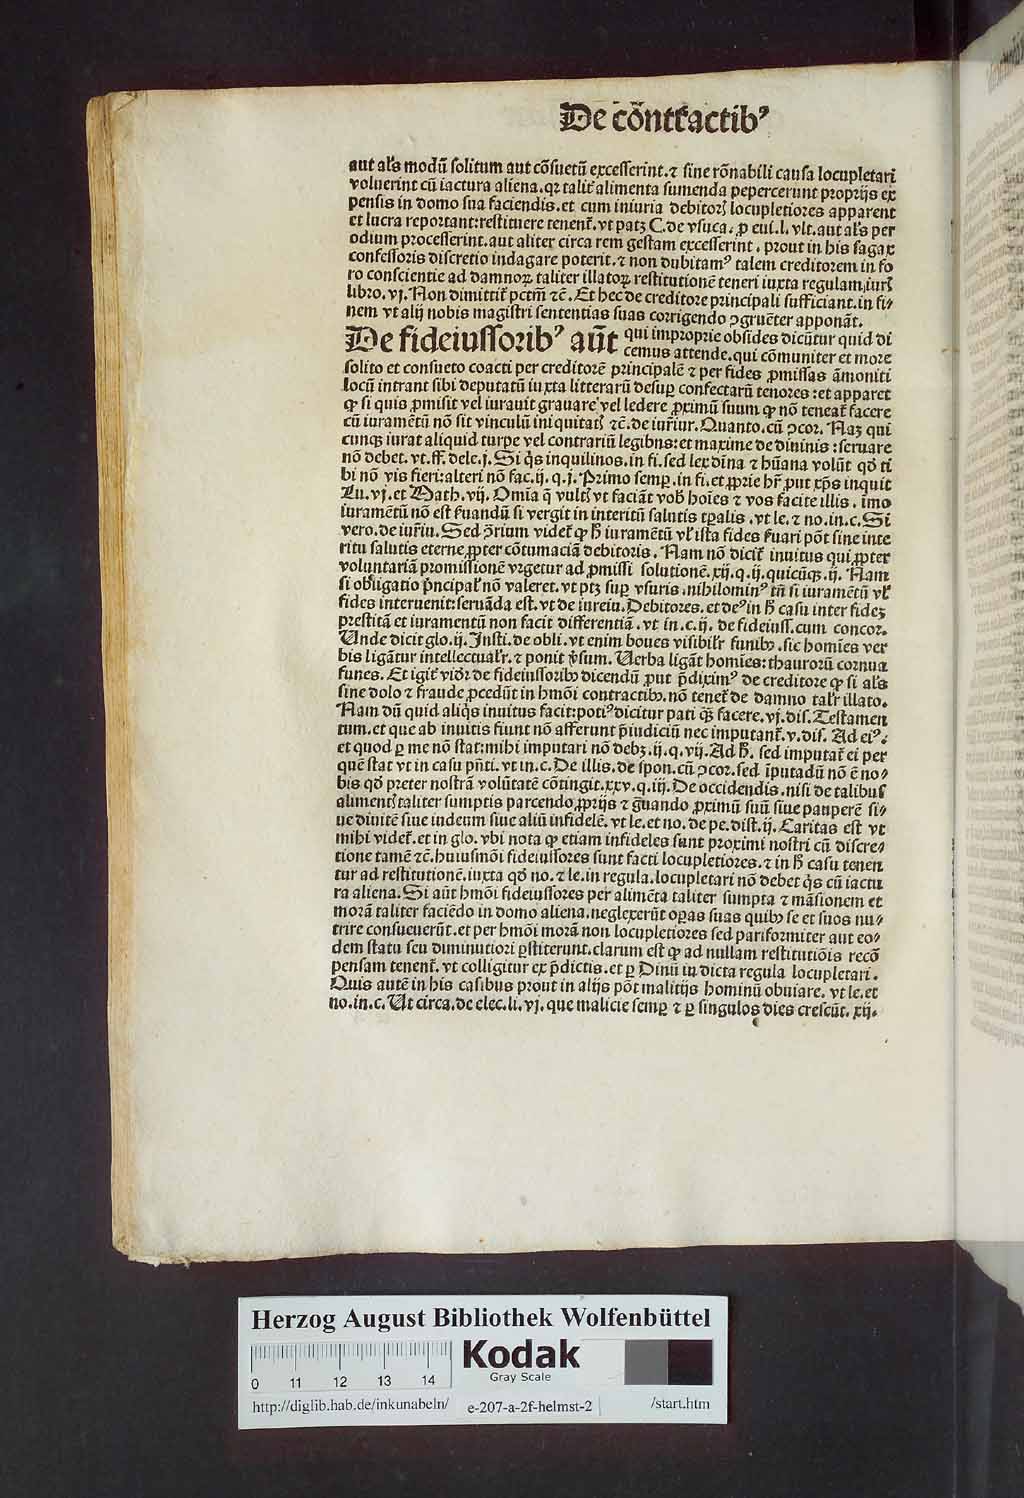 De cõntractibꝰ
aut al's modũ solitum aut cõsuetũ excesserint. ⁊ sine rõnabili causa locupletari
voluerint cũ iactura aliena. qꝛ talit' alimenta sumenda pepercerunt proprijs ex
pensis in domo sua faciendis. et cum iniuria debitoꝝ locupletiores apparent
et lucra reportant: restituere tenent'. vt patꝫ C. de vsuca. ꝓ eui. l. vlt. aut al's per
odium processerint. aut aliter circa rem gestam excesserint, prout in his sagax
confessoris discretio indagare poterit. ⁊ non dubitamꝰ talem creditorem in fo
ro conscientie ad damnoꝝ taliter illatoꝝ restitutionẽ teneri iuxta regulam iurꝭ
libro. vj. Non dimittit' pctm̃ ⁊c̃. Et hec de creditore principali sufficiant. in fi⸗
nem vt alij nobis magistri sententias suas corrigendo ꝯgruẽter apponãt.
De fideiussoribꝰ aũt qui improprie obsides dicũtur quid di
cemus attende. qui cõmuniter et more
solito et consueto coacti per creditorẽ principalẽ ⁊ per fides ꝓmissas ãmoniti
locũ intrant sibi deputatũ iuxta litterarũ desuꝑ confectarũ tenores: et apparet
ꝙ si quis ꝓmisit vel iurauit grauare vel ledere ꝓximũ suum ꝙ nõ teneat' facere
cũ iuramẽtũ nõ sit vinculũ iniquitatꝭ ⁊c̃. de iur'iur. Quanto. cũ ꝯcor. Naꝫ qui
cunqꝫ iurat aliquid turpe vel contrariũ legibus: et maxime de diuinis: seruare
nõ debet. vt. ff. de le. j. Si q̇s inquilinos. in fi. sed lex diña ⁊ hũana volũt qd̕ ti
bi nõ vis fieri: alteri nõ fac. ij. q. j. Primo semꝑ. in fi. et ꝓprie hr̃ ꝓut xp̃s inquit
Lu. vj. et Math. vij. Omĩa q̃ vultꝭ vt faciãt vob' hoĩes ⁊ vos facite illis. imo
iuramẽtũ nõ est s'uandũ si vergit in interitũ salutis tꝑalis. vt le. ⁊ no. in. c. Si
vero. de iur'iu. Sed ꝯ̃rium videt' ꝙ h̃ iuramẽtũ vl' ista fides s'uari põt sine inte
ritu salutis eterne ꝓpter cõtumaciã debitoris. Nam nõ dicit' inuitus qui ꝓpter
voluntariã promissionẽ vrgetur ad ꝓmissi solutionẽ. xij. q. ij. quicũqꝫ. ij. Nam
si obligatio p̃ncipal' nõ valeret. vt ptꝫ suꝑ vsuris. nihilominꝰ tñ si iuramẽtũ vl'
fides interuenit: seruãda est. vt de iureiu. Debitores. et deꝰ in h̃ casu inter fideꝫ
prestitã et iuramentũ non facit differentiã. vt in. c. ij. de fideiuss. cum concor.
Unde dicit glo. ij. Insti. de obli. vt enim boues visibilr̃ funibꝫ. sic homĩes ver
bis ligãtur intellectualr̃. ⁊ ponit v̓sum. Verba ligãt homĩes: thaurorũ cornua
funes. Et igit' vidr̃ de fideiussoribꝫ dicendũ ꝓut p̃diximꝰ de creditore ꝙ si al's
sine dolo ⁊ fraude ꝓcedũt in hmõi contractibꝫ. nõ tenet' de damno talr̃ illato.
Nam dũ quid aliq̇s inuitus facit: potiꝰ dicitur pati q̃ꝫ facere. vj. dis. Testamen
tum. et que ab inuitis fiunt nõ afferunt p̃iudiciũ nec imputant'. v. dis. Ad eiꝰ.
et quod ꝑ me nõ stat: mihi imputari nõ debꝫ. ij. q. vij. Ad h̃. sed imputat' ei per
quẽ stat vt in casu pñti. vt in. c. De illis. de spon. cũ ꝯcor. sed ĩputadũ nõ ẽ no⸗
bis qd̕ preter nostrã volũtatẽ cõtingit. xxv. q. iij. De occidendis. nisi de talibus
alimentꝭ taliter sumptis parcendo ꝓprijs ⁊ g̃uando ꝓximũ suũ siue pauperẽ si⸗
ue diuitẽ siue iudeum siue aliũ infidelẽ. vt le. et no. de pe. dist. ij. Caritas est vt
mihi videt'. et in glo. vbi nota ꝙ etiam infideles sunt proximi nostri cũ discre⸗
tione tamẽ ⁊c̃. huiusmõi fideiussores sunt facti locupletiores. ⁊ in h̃ casu tenen
tur ad restitutionẽ. iuxta qd̕ no. ⁊ le. in regula. locupletari nõ debet q̇s cũ iactu
ra aliena. Si aũt hmõi fideiussores per alimẽta taliter sumpta ⁊ mãsionem et
morã taliter faciẽdo in domo aliena. neglexerũt oꝑas suas quibꝫ se et suos nu⸗
trire consueuerũt. et per hmõi morã non locupletiores sed pariformiter aut eo⸗
dem statu seu diminutiori ꝑstiterunt. clarum est ꝙ ad nullam restitutiõis recõ
pensam tenent'. vt colligitur ex p̃dictis. et ꝑ Dinũ in dicta regula locupletari.
Quis autẽ in his casibus prout in alijs põt malitijs hominũ obuiare. vt le. et
no. in. c. Ut circa. de elec. li. vj. que malicie semꝑ ⁊ ꝑ singulos dies crescũt. xij.
Herzog August Bibliothek Wolfenbüttel
0 11 12 13 14
Kodak
Gray Scale
http://diglib.hab.de/inkunabeln/ e-207-a-2f-helmst-2 /start.htm